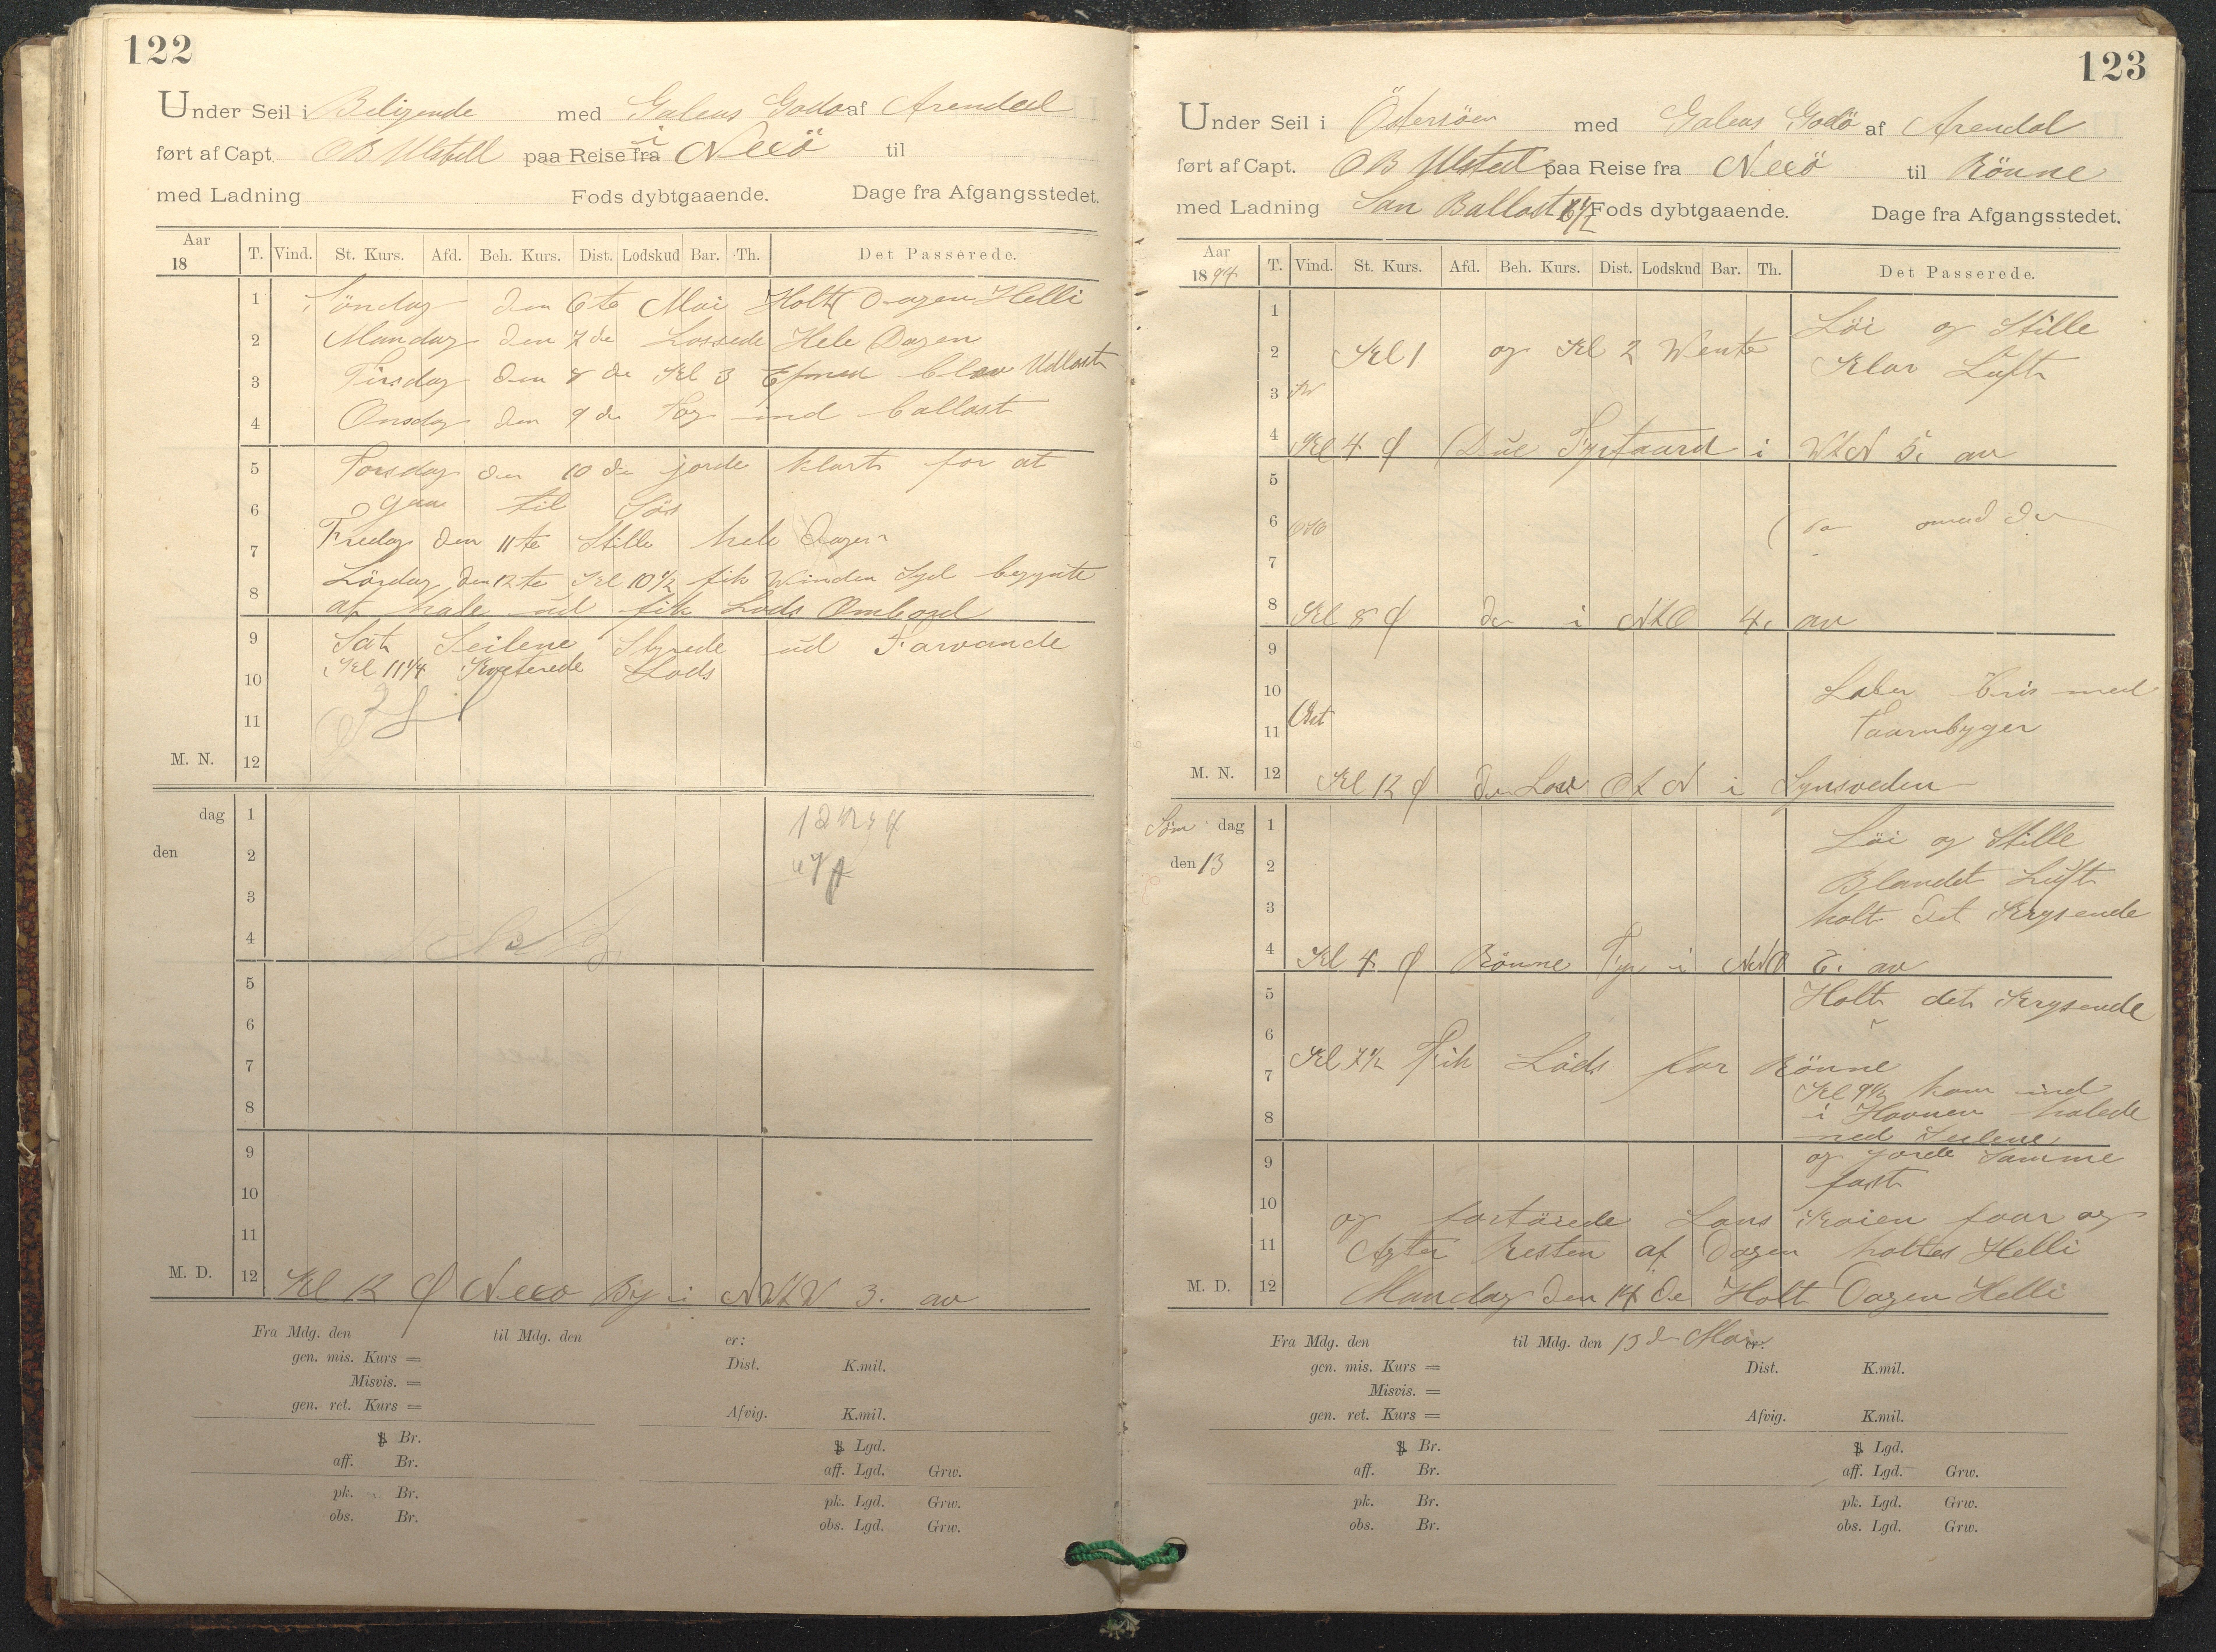 122
Under Seil i Beligende med Galeas Godø af Arendal
ført af Capt. OB Ulsted paa Reise fra i Nexö til
med Ladning Fods dybtgaaende. Dage fra Afgangsstedet.
Aar 18 T. Vind. St. Kurs. Afd. Beh. Kurs. Dist. Lodskud Bar. Th. Det Passerede.
1 Söndag den 6te Mai Holtt Dagen Helli
2 Mandag den 7de Lossede Hele Dagen
3 Tirsdag den 8de Kl 3 Efmed blev Udlost
4 Onsdag den 9de tog ind ballast
5 Torsdag den 10de jorde klart for at
6 gaa til Søs
7 Fredag den 11te Stille hele Dagen
8 Lördag den 12te Kl 10½ fik Winden Syd begynte
at hale ud fik Lods Ombord
9 Sat Seilene Styrede ud Farvande
10 Kl 11¼ Kviterede Lods
11
M. N. 12
dag 1
den 2
3
4
5
6
7
8
9
10
11
M. D. 12 Kl 12 Nexø By i NWtW 3. av
Fra Mdg. den til Mdg. den er:
gen. mis. Kurs = Dist. K.mil.
Misvis. =
gen. ret. Kurs = Afvig. K.mil.
Br. Lgd.
aff. Br. aff. Lgd. Grw.
pk. Br. pk. Lgd. Grw.
obs. Br. obs. Lgd. Grw.
123
Under Seil i Östersöen med Galeas Godö af Arendal
ført af Capt. OB Ulsted paa Reise fra Nexö til Rönne
med Ladning San Ballast 6½ Fods dybtgaaende. Dage fra Afgangsstedet.
Aar 1894 T. Vind. St. Kurs. Afd. Beh. Kurs. Dist. Lodskud Bar. Th. Det Passerede.
1 Löi og Stille
2 Kl 1 og Kl 2 Wente Klar Luft
3
4 Kl 4 Due Fyrtaarn i WtN 5. av
5
6
7
8 Kl 8 i NtO 4. av
9
10 Laber bris med
11 Taarnbyger
M. N. 12 Kl 12 OtN i Synsveden
Søn dag 1 Löi og Stille
den 13 2 Blandet Luft
3 holt det Krysende
4 Kl 4 Rönne Fyr i NNO av
5 Holt det Krysende
6
7 Kl 7½ Fik Lods for Rönne
Kl 9½ kom ind
8 i Havnen halede
ned Seilene
9 og jorde Samme
fast
10 og fortöiede Lans Kaien foor og
11 Agter Resten af Dagen holtes Helli
M. D. 12 Mandag den 14de Holt Dagen Helli
Fra Mdg. den til Mdg. den 13de Mai er:
gen. mis. Kurs = Dist. K.mil.
Misvis. =
gen. ret. Kurs = Afvig. K.mil.
Br. Lgd.
aff. Br. aff. Lgd. Grw.
pk. Br. pk. Lgd. Grw.
obs. Br. obs. Lgd. Grw.